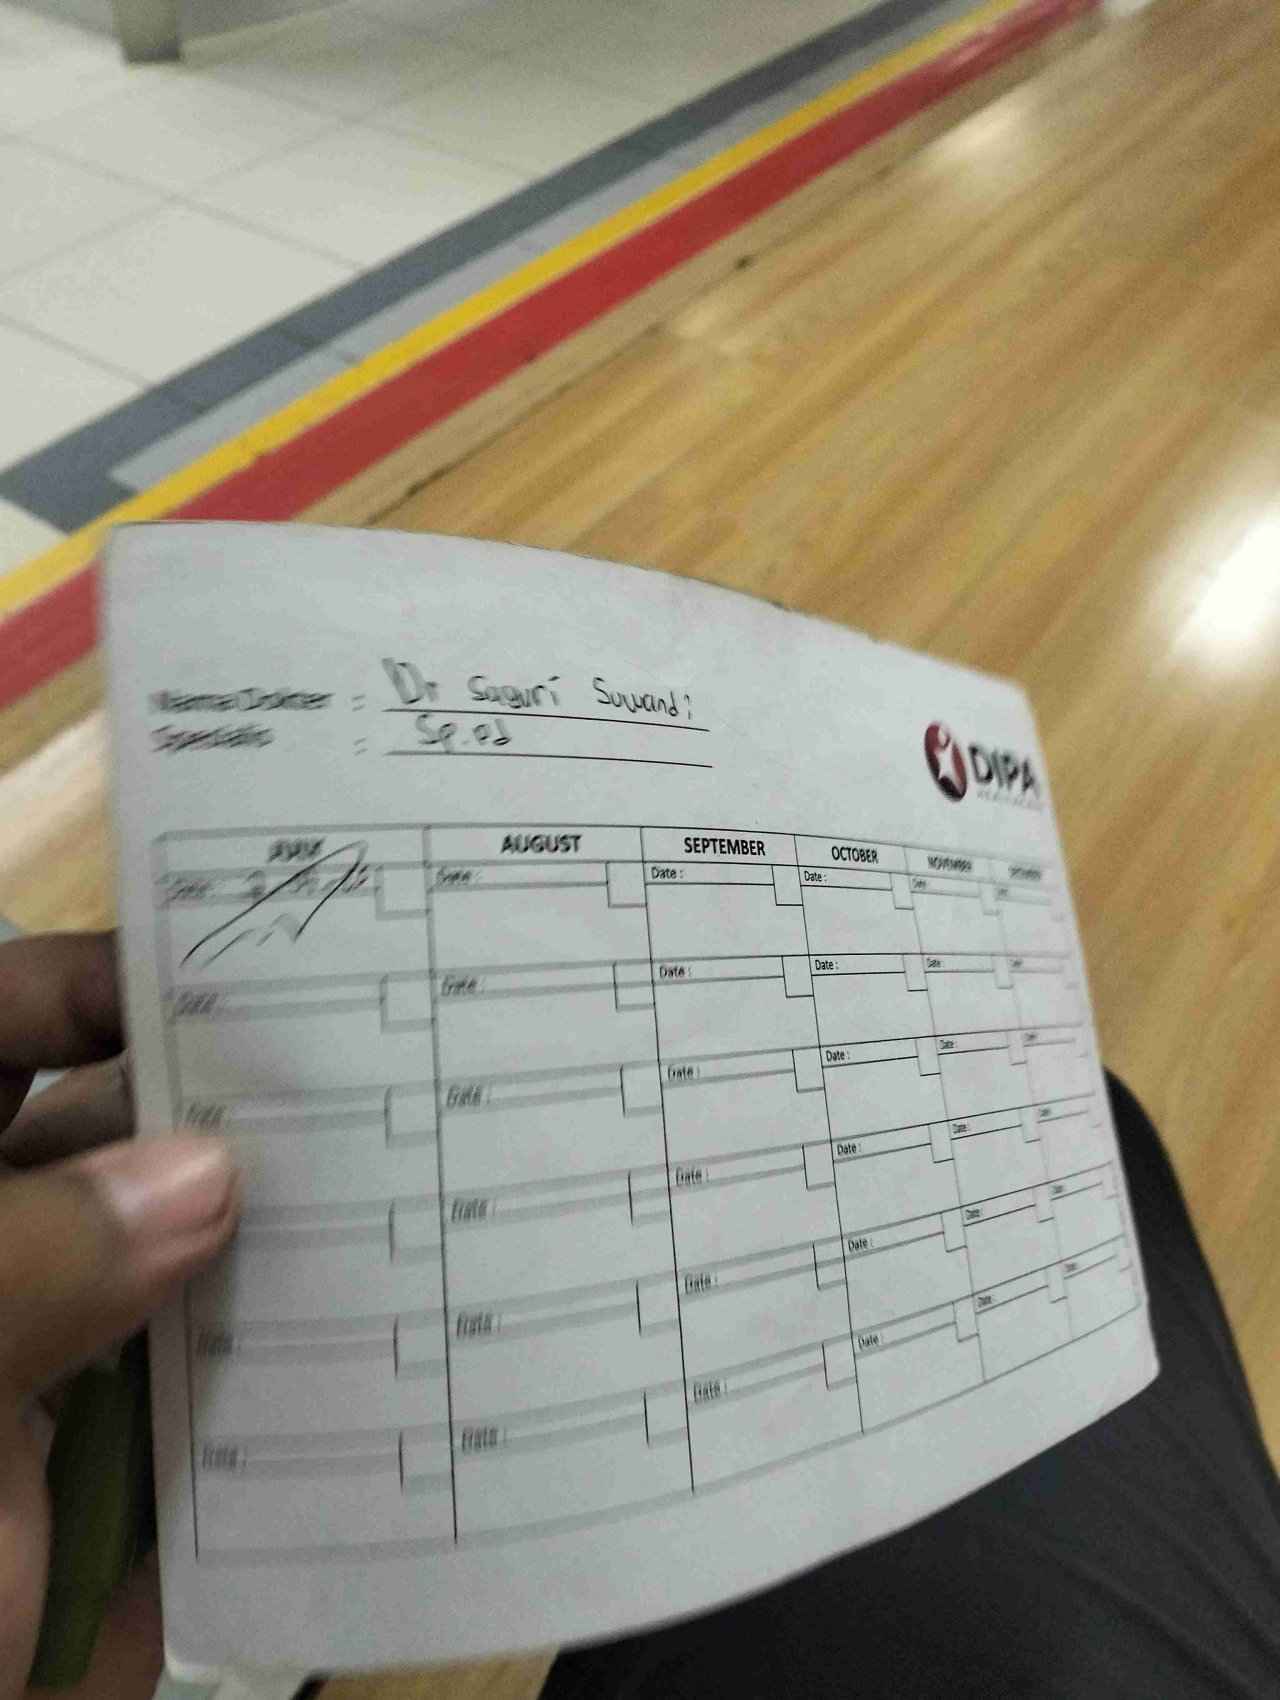 Nama Dokter : Dr Saguri Suwandi
Spesialis : Sp.Pd
DIPA
JULY AUGUST SEPTEMBER OCTOBER NOVEMBER DECEMBER
Date : Date : Date : Date : Date : Date :
Date : Date : Date : Date : Date : Date :
Date : Date : Date : Date : Date : Date :
Date : Date : Date : Date : Date :
Date : Date : Date : Date : Date : Date :
Date : Date : Date : Date : Date : Date :